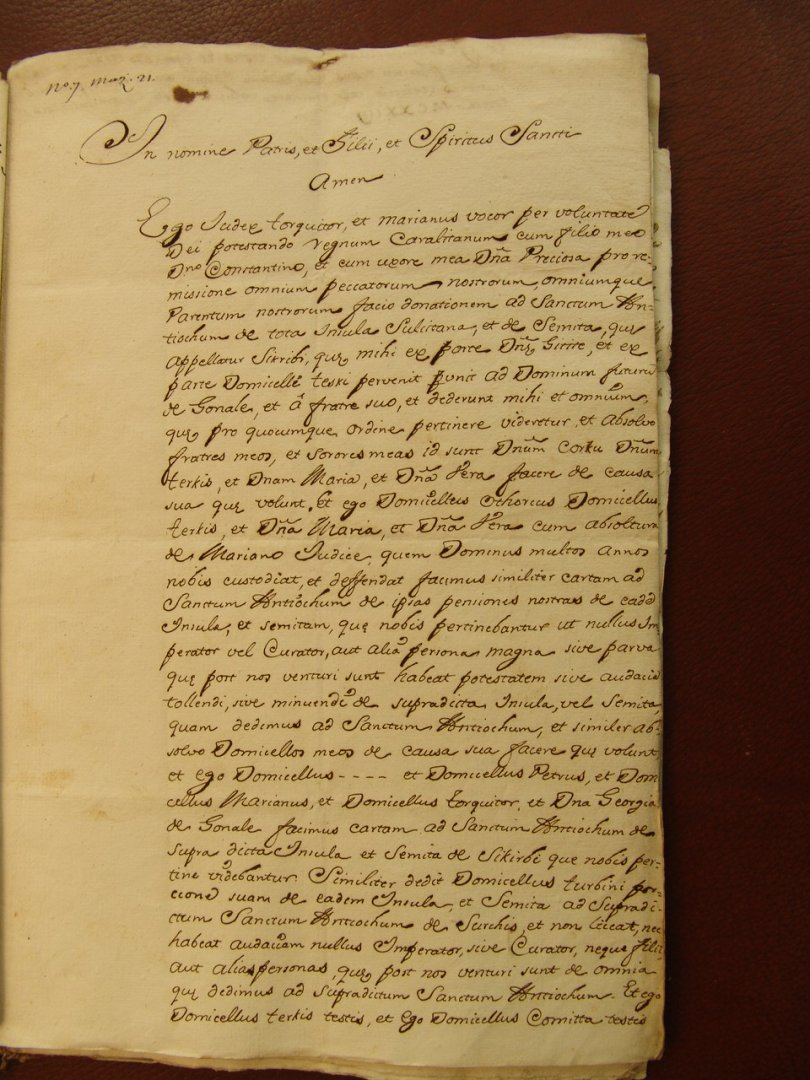 No. 7. Maz. 21.
In nomine Patris, et Filii, et Spiritus Sancti
Amen
Ego Judex torquitor, et marianus vocor per voluntate
Dei potestando regnum Caralitanum cum filio meo
Dno Constantino, et cum uxore mea Dña Preciosa pro re-
missione omnium peccatorum nostrorum, omniumque
Parentum nostrorum facio donationem ad Sanctum An-
tiochum de tota Insula Sulcitana, et de Semita, quę
appellatur Sikribi, quę mihi ex parte Dnę et ex
parte Domicelle teski pervenit ad Dominum
de Gonale, et â fratre suo, et dederunt mihi et omnium,
quę pro quocumque ordine pertinere videretur, et absolvo
fratres meos, et sorores meas id sunt Dnũm Dnũm
terkis, et Dnam Maria, et Dña Vera facere de causa
sua quę volunt. Et ego Domicelleus othorcus Domicellus
terkis, et Dña Maria, et Dña Vera cum absoltura
de Mariano Judice, quem Dominus multos annos
nobis custodiat, et deffendat facimus similiter cartam ad
Sanctum Antiochum de ipsas pensiones nostras de eadẽ
Insula, et semitam, quę nobis pertinebantur ut nullus Im-
perator vel Curator, aut alia persona magna sive parva
quę post nos venturi sunt habeat potestatem sive audacia
tollendi, sive minuendi de supradicta Insula, vel Semita
quam dedimus ad Sanctum Antiochum, et similer ab-
solvo Domicellos meos de causa sua facere quę volunt
et ego Domicellus - - - - et Domicellus Petrus, et Domi
cellus Marianus, et Domicellus torquitor, et Dna Georgia
de Gonale facimus cartam ad Sanctum Antiochum de
supra dicta Insula et Semita de Sikirbi que nobis per-
tine videbantur. Similiter dedit Domicellus turbini por-
cione suam de eadem Insula, et Semita ad Supradi-
ctum Sanctum Antiochum de Surchis, et non liceat, nec
habeat audaciam nullus Imperator, sive Curator, neque filii
aut alias personas, quę post nos venturi sunt de omnia
quę dedimus ad supradictum Sanctum Antiochum. Et ego
Domicellus terkis testis, et Ego Domicellus Comitta testis